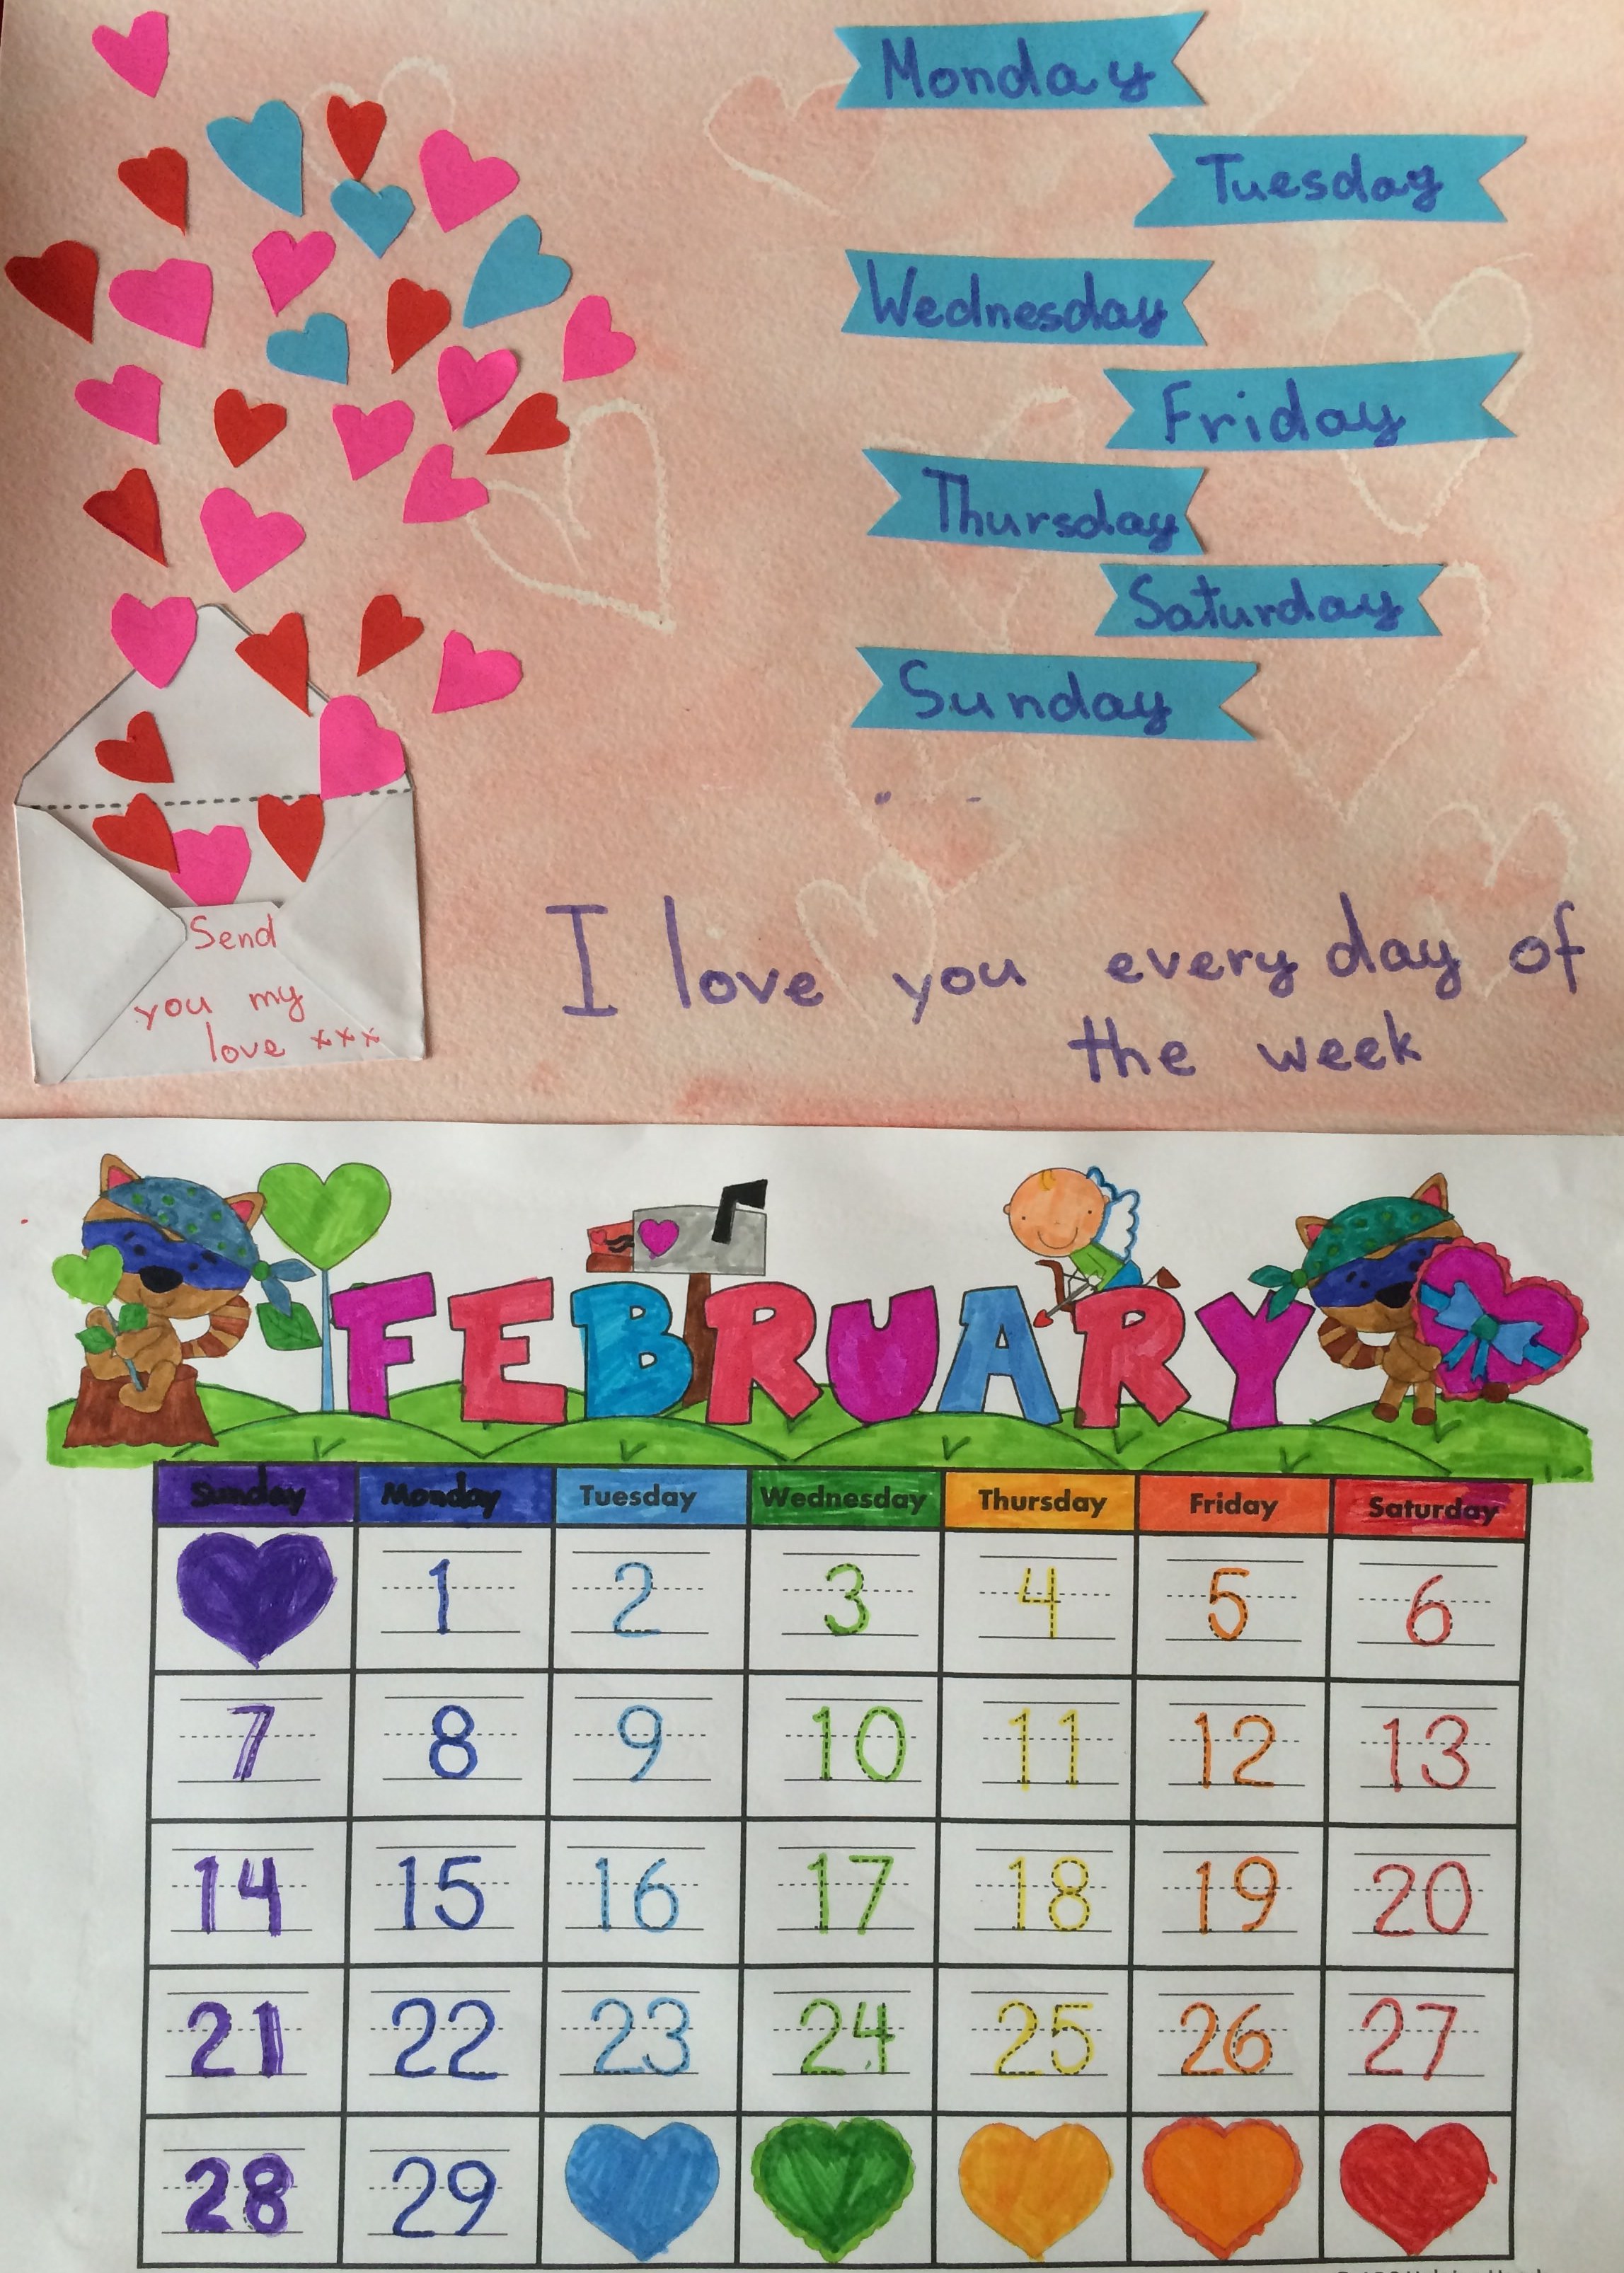 Monday
Tuesday
Wednesday
Friday
Thursday
Saturday
Sunday
Send
you my
love xxx
I love you every day of
the week
FEBRUARY
Sunday Monday Tuesday Wednesday Thursday Friday Saturday
1 2 3 4 5 6
7 8 9 10 11 12 13
14 15 16 17 18 19 20
21 22 23 24 25 26 27
28 29